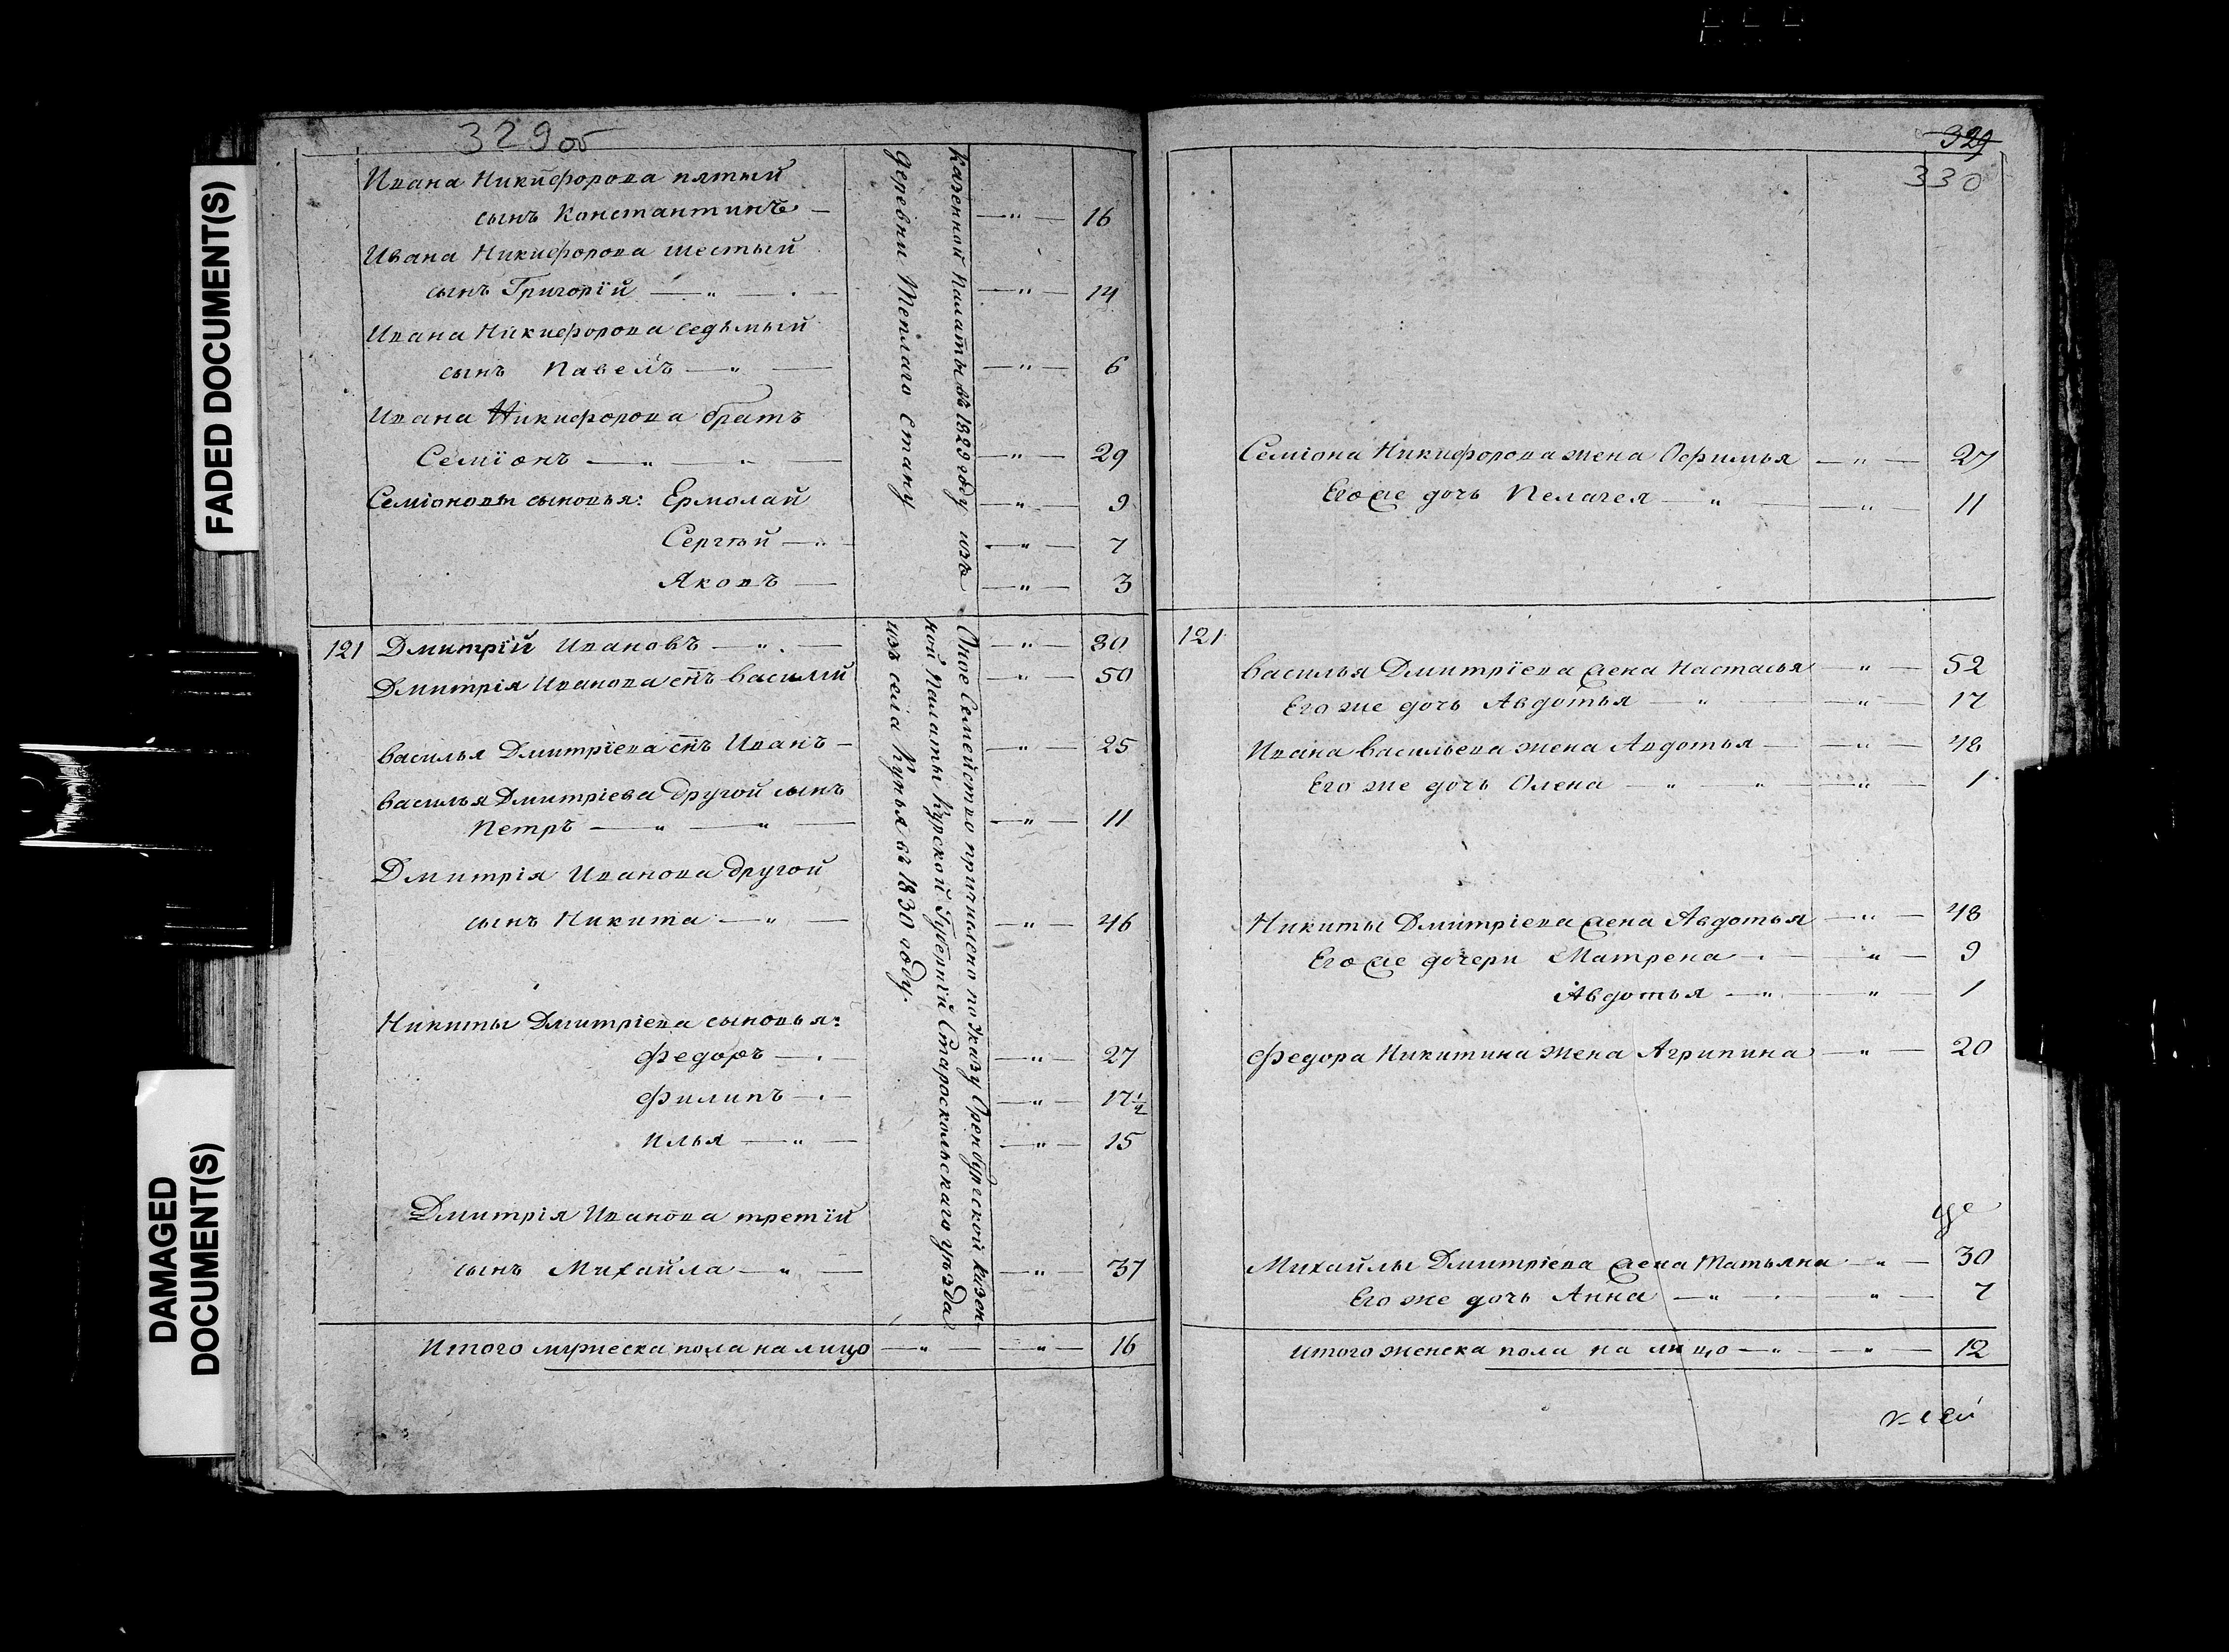 FADED DOCUMENT(S)
DAMAGED DOCUMENT(S)
329 об
Ивана Никифорова пятый
сынъ Константинъ — " — 16
Ивана Никифорова шестый
сынъ Григорїй — " — 14
Ивана Никифорова седьмый
сынъ Павелъ — " — 6
Ивана Никифорова братъ
Семїонъ — " — 29
Семіоновы сыновья: Ермолай — " — 9
Сергѣй — " — 7
Яковъ — " — 3
Казенной Палаты въ 1829 году изъ
деревни Теплаго Стану
121 Дмитрїй Ивановъ — " — 80
Дмитрія Иванова снъ Василій — " — 50
Василья Дмитрїева снъ Иванъ — " — 25
Василья Дмитріева другой сынъ
Петръ — " — 11
Дмитрія Иванова другой
сынъ Никита — " — 46
Никиты Дмитріева сыновья:
Федоръ — " — 27
Филипъ — " — 17½
Илья — " — 15
Дмитрія Иванова третїй
сынъ Михайла — " — 37
Оное Семейство причислено по Указу Оренбургской Казен-
ной Палаты Курской Губернїи Старооскольскаго уѣзда
изъ села Кунья въ 1830 году.
Итого мужеска пола на лицо — " — 16
329
330
Семіона Никифорова жена Офимья — " — 27
Его же дочь Пелагея — " — 11
121
Василья Дмитрїева жена Настасья — " — 52
Его же дочь Авдотья — " — 17
Ивана Васильева жена Авдотья — " — 48
Его же дочь Олена — " — 1
Никиты Дмитріева жена Авдотья — " — 48
Его же дочери Матрена — " — 9
Авдотья — " — 1
Федора Никитина жена Агрипина — " — 20
Михайлы Дмитріева жена Татьяна — " — 30
Его же дочь Анна — " — 7
Итого женска пола на лицо — " — 12